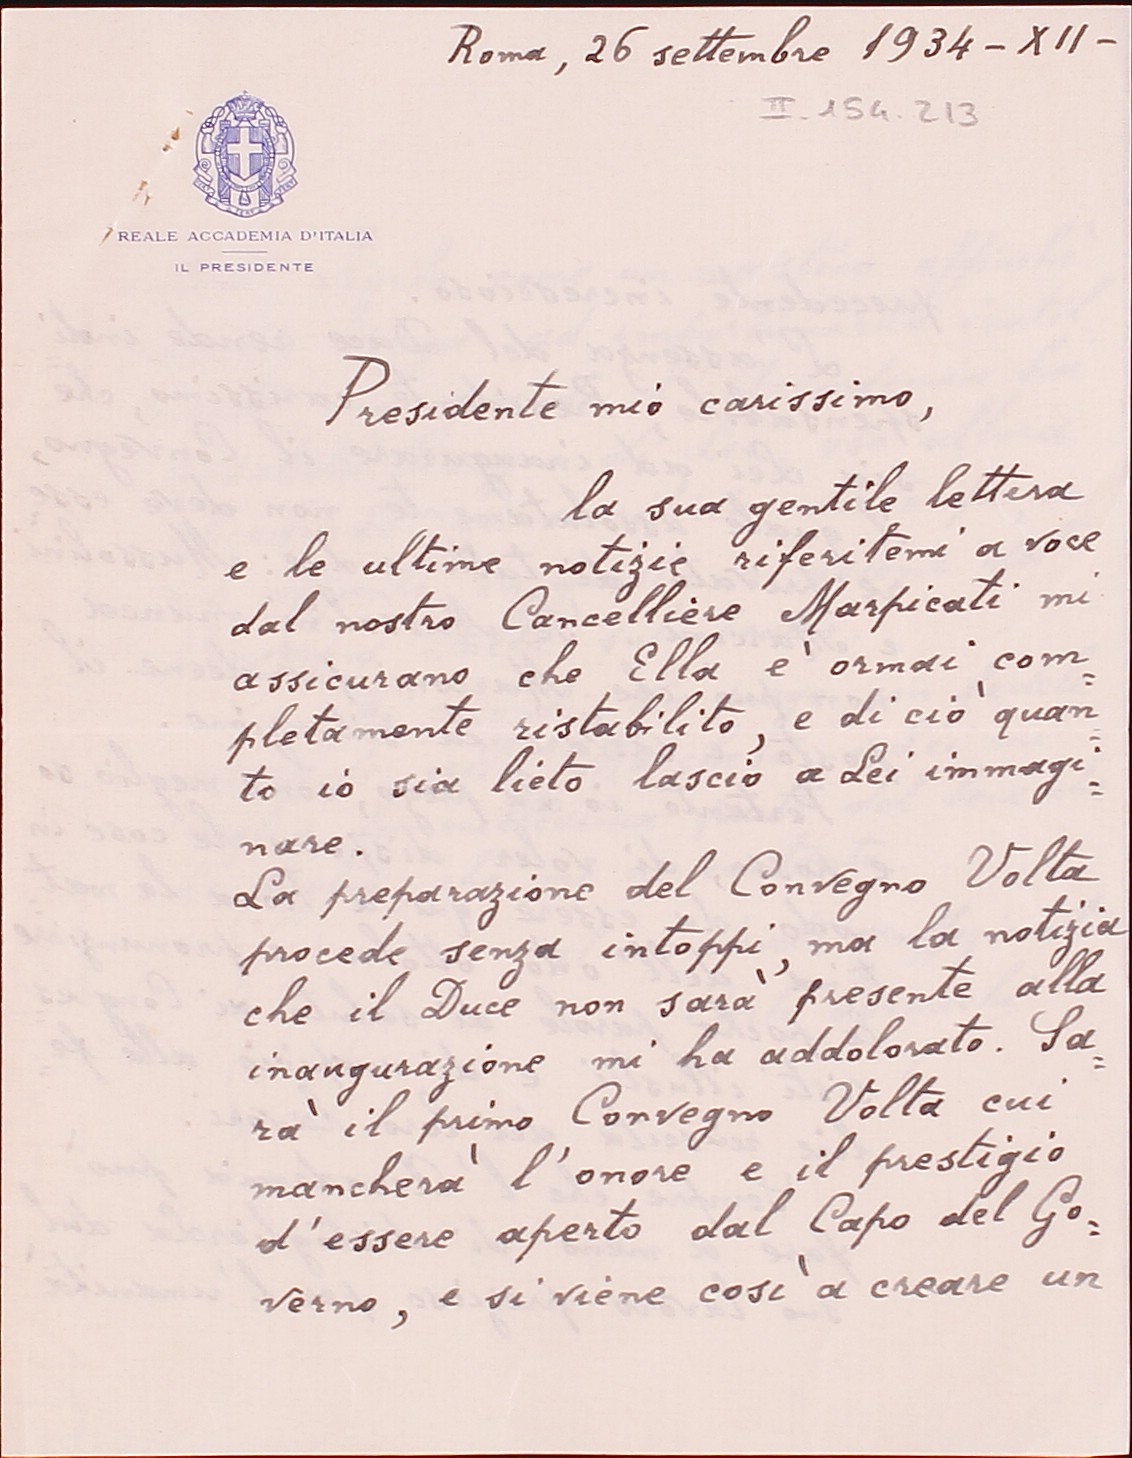 Roma, 26 settembre 1934 - XII -
II. 154. 213
REALE ACCADEMIA D'ITALIA
IL PRESIDENTE
Presidente mio carissimo,
la sua gentile lettera
e le ultime notizie riferitemi a voce
dal nostro Cancelliere Marpicati mi
assicurano che Ella e' ormai com=
pletamente ristabilito, e di ciò quan=
to io sia lieto lascio a Lei immagi=
nare.
La preparazione del Convegno Volta
procede senza intoppi, ma la notizia
che il Duce non sarà presente alla
inaugurazione mi ha addolorato. Sa=
rà il primo Convegno Volta cui
mancherà l'onore e il prestigio
d'essere aperto dal Capo del Go=
verno, e si viene così a creare un